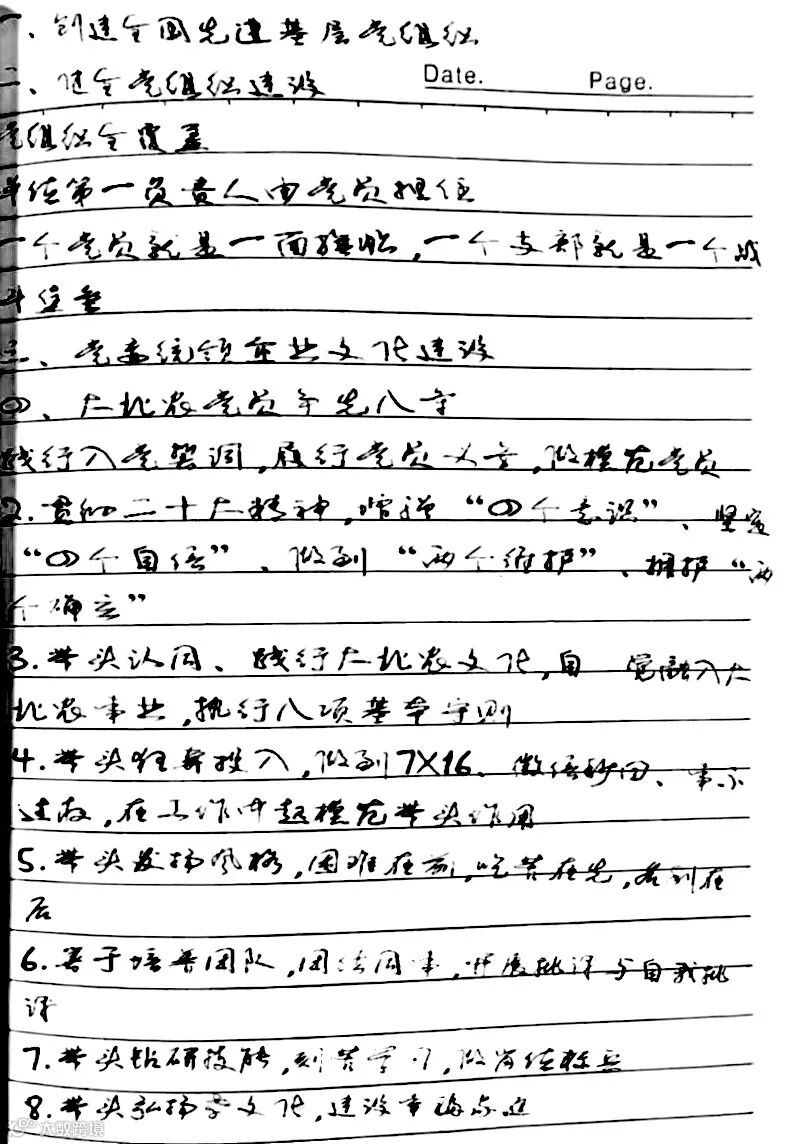 一、创建全国先进基层党组织
二、健全党组织建设
Date. Page.
党组织全覆盖
单位第一负责人由党员担任
一个党员就是一面旗帜，一个支部就是一个战
斗堡垒
三、党委统领企业文化建设
四、大北农党员争先八守
践行入党誓词，履行党员义务，做模范党员
2.贯彻二十大精神，增强“四个意识”、坚定
“四个自信”、做到“两个维护”、拥护“两
个确立”
3.带头认同、践行大北农文化，自觉融入大
北农事业，执行八项基本守则
4.带头狂奔投入，做到7X16、微信秒回、事不
过夜，在工作中起模范带头作用
5.带头发扬风格，困难在前，吃苦在先，名利在
后
6.善于培养团队，团结同事，开展批评与自我批
评
7.带头钻研技能，刻苦学习，做岗位标兵
8.带头弘扬孝文化，建设幸福家庭
大数跨境